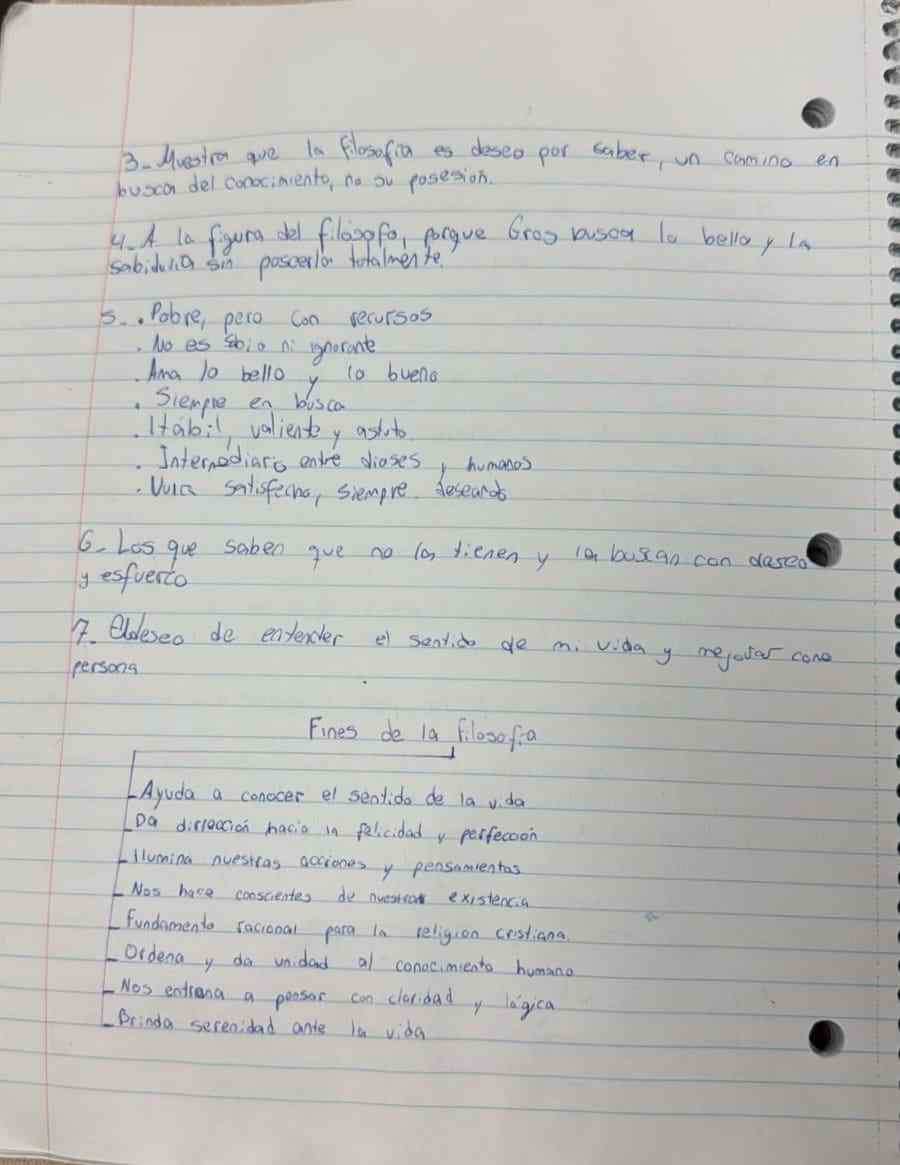 3- Muestra que la filosofía es deseo por saber, un camino en
busca del conocimiento, no su posesión.
4- A la figura del filósofo, porque Eros busca lo bello y la
sabiduría sin poseerla totalmente.
5- . Pobre, pero con recursos
. No es sabio ni ignorante
. Ama lo bello y lo bueno
. Siempre en busca
. Hábil, valiente y astuto
. Intermediario entre dioses y humanos
. satisfecho, siempre deseando
6- Los que saben que no la tienen y la buscan con deseo
y esfuerzo
7- El deseo de entender el sentido de mi vida y mejorar como
persona
Fines de la filosofía
- Ayuda a conocer el sentido de la vida
- Da dirección hacia la felicidad y perfección
- Ilumina nuestras acciones y pensamientos
- Nos hace conscientes de nuestra existencia
- Fundamento racional para la religion cristiana.
- Ordena y da unidad al conocimiento humano
- Nos entrena a pensar con claridad y lógica
- Brinda serenidad ante la vida